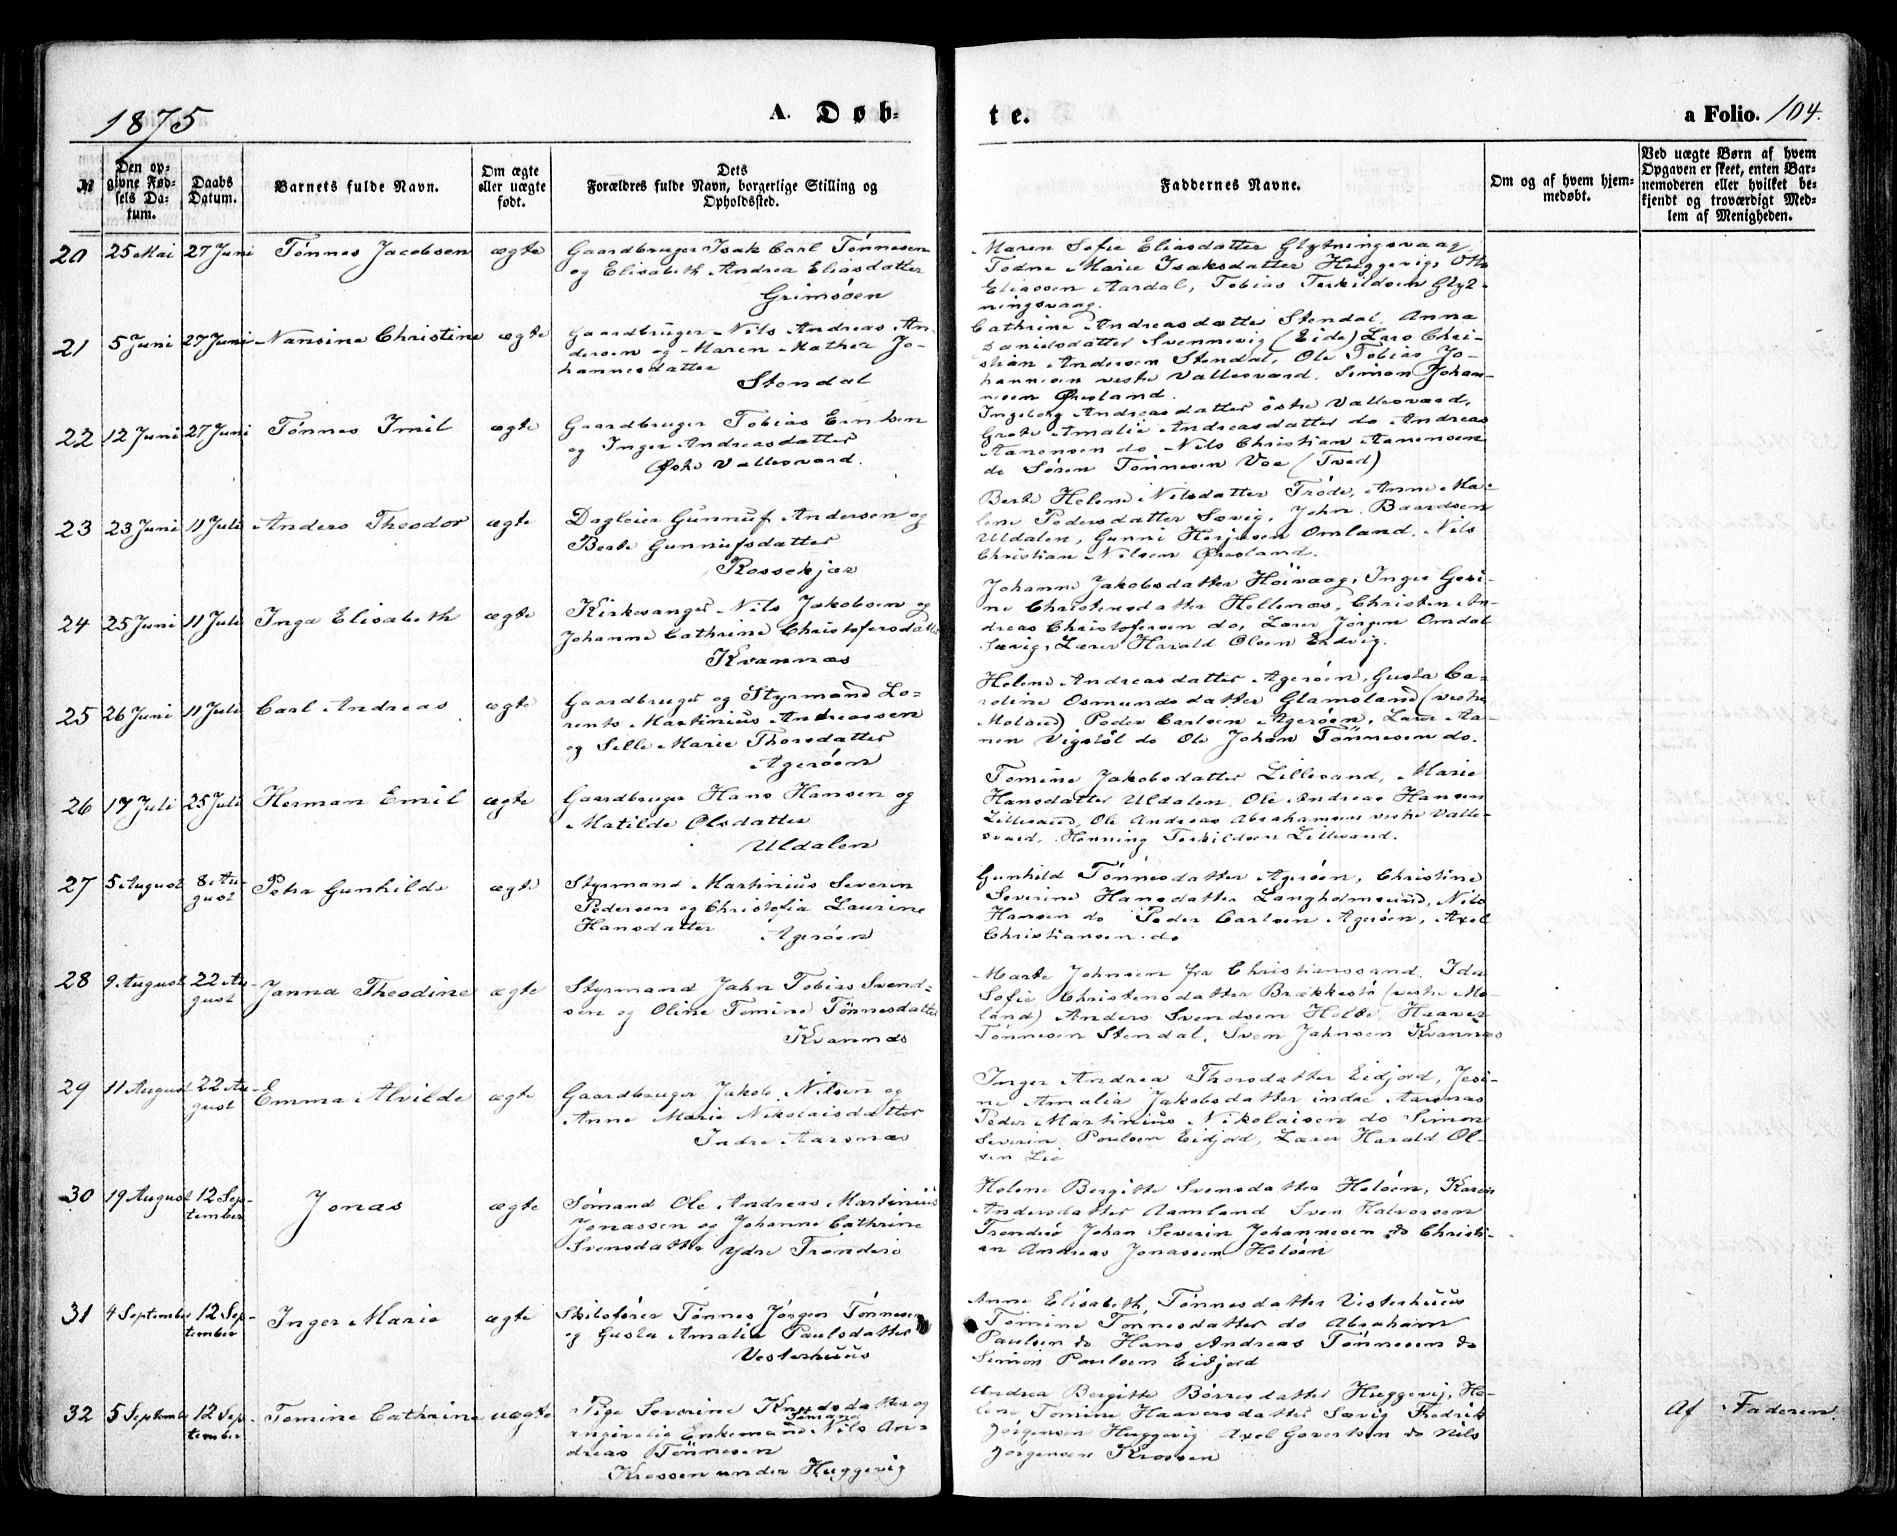 1875
A. Døb-
te.
a Folio. 104.
No
Den op-
givne Fød-
sels Da-
tum.
Daabs
Datum.
Barnets fulde Navn.
Om ægte
eller uægte
født.
Dets
Forældres fulde Navn, borgerlige Stilling og
Opholdssted.
Faddernes Navne.
Om og af hvem hjem-
medøbt.
Ved uægte Børn af hvem
Opgaven er skeet, enten Bar-
nemoderen eller hvilket be-
kjendt og troværdigt Med-
lem af Menigheden.
20 25 Mai 27 Juni Tønnes Jacobsen ægte
Gaardbruger Isak Carl Tønnesen
og Elisabeth Andrea Eliasdatter
Grimsøen
Maren Sofie Eliasdatter Glytningsvaag
Todne Marie Isaksdatter Huggevig, Otto
Eliassen Aardal, Tobias Terkildsen Glyt-
ningsvaag.
21 5 Juni 27 Juni Nansine Christine ægte
Gaardbruger Nils Andreas An-
dersen og Maren Mathea Jo-
hannesdatter
Stendal
Cathrine Andreasdatter Stendal, Anna
Danielsdatter Svennevig (Eide) Lars Chri-
stian Andersen Stendal, Ole Tobias Jo-
hannesen vestre Vallesværd. Simon Johan-
nesen Øresland.
22 12 Juni 27 Juni Tønnes Imil ægte
Gaardbruger Tobias Erntsen
og Inger Andreasdatter
Østre Vallesværd.
Ingeborg Andreasdatter østre Vallesværd,
Grete Amalie Andreasdatter do Andreas
Aanensen do, Nils Christian Aanensen
do Søren Tønnesen Voe (Tved)
23 23 Juni 11 Juli Anders Theodor ægte
Dagleier Gunnuf Andersen og
Berte Gunnufsdatter
Rossekjær
Berte Helene Nilsdatter Trøde, Anne Ma-
lene Pedersdatter Sævig, John Baardsen
Uldalen, Gunni Herjusen Omland. Nils
Christian Nilsen Øresland.
24 25 Juni 11 Juli Inga Elisabeth ægte
Kirkesanger Nils Jakobsen og
Johanne Cathrine Christofersdatter
Kvannæs
Johanne Jakobsdatter Høivaag, Inger Gesi-
ne Christensdatter Hellenæs, Christen An-
dreas Christofersen do, Lærer Jørgen Omdal
Sævig, Lærer Harald Olsen Eidvig.
25 26 Juni 11 Juli Carl Andreas ægte
Gaardbruger og Styrmand Lo-
rents Martinius Andreassen
og Sille Marie Thorsdatter
Agerøen
Helene Andreasdatter Agerøen, Gusta Ca-
roline Osmundsdatter Glamsland (vestre
Moland) Peder Carlsen Agerøen, Lærer Aa-
nen Vigstøl do Ole Johan Tønnesen do.
26 17 Juli 25 Juli Herman Emil ægte
Gaardbruger Hans Hansen og
Matilde Olsdatter
Uldalen
Tomine Jakobsdatter Lillesand, Marie
Hansdatter Uldalen, Ole Andreas Hansen
Lillesand, Ole Andreas Abrahamsen vestre Valle-
sværd, Henning Terkildsen Lillesand.
27 5 August 8 Au-
gust Petra Gunhilde ægte
Styrmand Martinius Severin
Pedersen og Christofia Laurine
Hansdatter Agerøen
Gunhild Tønnesdatter Agerøen, Christine
Severine Hansdatter Langholmsund, Nils
Hansen do Peder Carlsen Agerøen, Axel
Christiansen do
28 9 August 22 Au-
gust Janna Theodine ægte
Styrmand Jahn Tobias Svend-
sen og Oline Tomine Tønnesdatter
Kvannæs
Marte Johnsen fra Christianssand. Ida
Sofie Christensdatter Brækkestø (vestre Mo-
land) Anders Svendsen Holte, Haaver
Tønnesen Stendal, Sven Jahnsen Kvannæs
29 11 August 22 Au-
gust Emma Alvilde ægte
Gaardbruger Jakob Nilsen og
Anne Marie Nikolaisdatter
Indre Aarsnæs
Inger Andrea Thorsdatter Eidjord, Jesi-
ne Amalia Jakobsdatter indre Aarsnæs
Peder Martinius Nikolaisen do Simon
Severin Poulsen Eidjord, Lærer Harald Ol-
sen Lie
30 19 August 12 Sep-
tember Jonas ægte
Sømand Ole Andreas Martinius
Jonassen og Johanne Cathrine
Svensdatter ydre Trondesø
Helene Bergitte Svensdatter Heløen, Karen
Andersdatter Aamland Sven Halvorsen
Trondesø Johan Severin Johannesen do Christi-
an Andreas Jonassen Heløen
31 4 September 12 Sep-
tember Inger Marie ægte
Skibsfører Tønnes Jørgen Tønnesen
og Gusta Amalia Paulsdatter
Vesterhuus
Anne Elisabeth Tønnesdatter Vesterhuus
Tomine Tønnesdatter do Abraham
Paulsen do Hans Andreas Tønnesen do
Simon Poulsen Eidjord
32 5 September 12 Sep-
tember Tomine Cathrine uægte
Pige Severine Knudsdatter og
Sømand
angivelig Enkemand Nils An-
dreas Tønnesen
Krossen under Huggevig
Andrea Bergitte Børresdatter Huggevig, He-
lene Tomine Haaversdatter Sævig Fredrik
Jørgensen Huggevig Axel Govertsen do Nils
Jørgensen Krossen
Af Faderen.